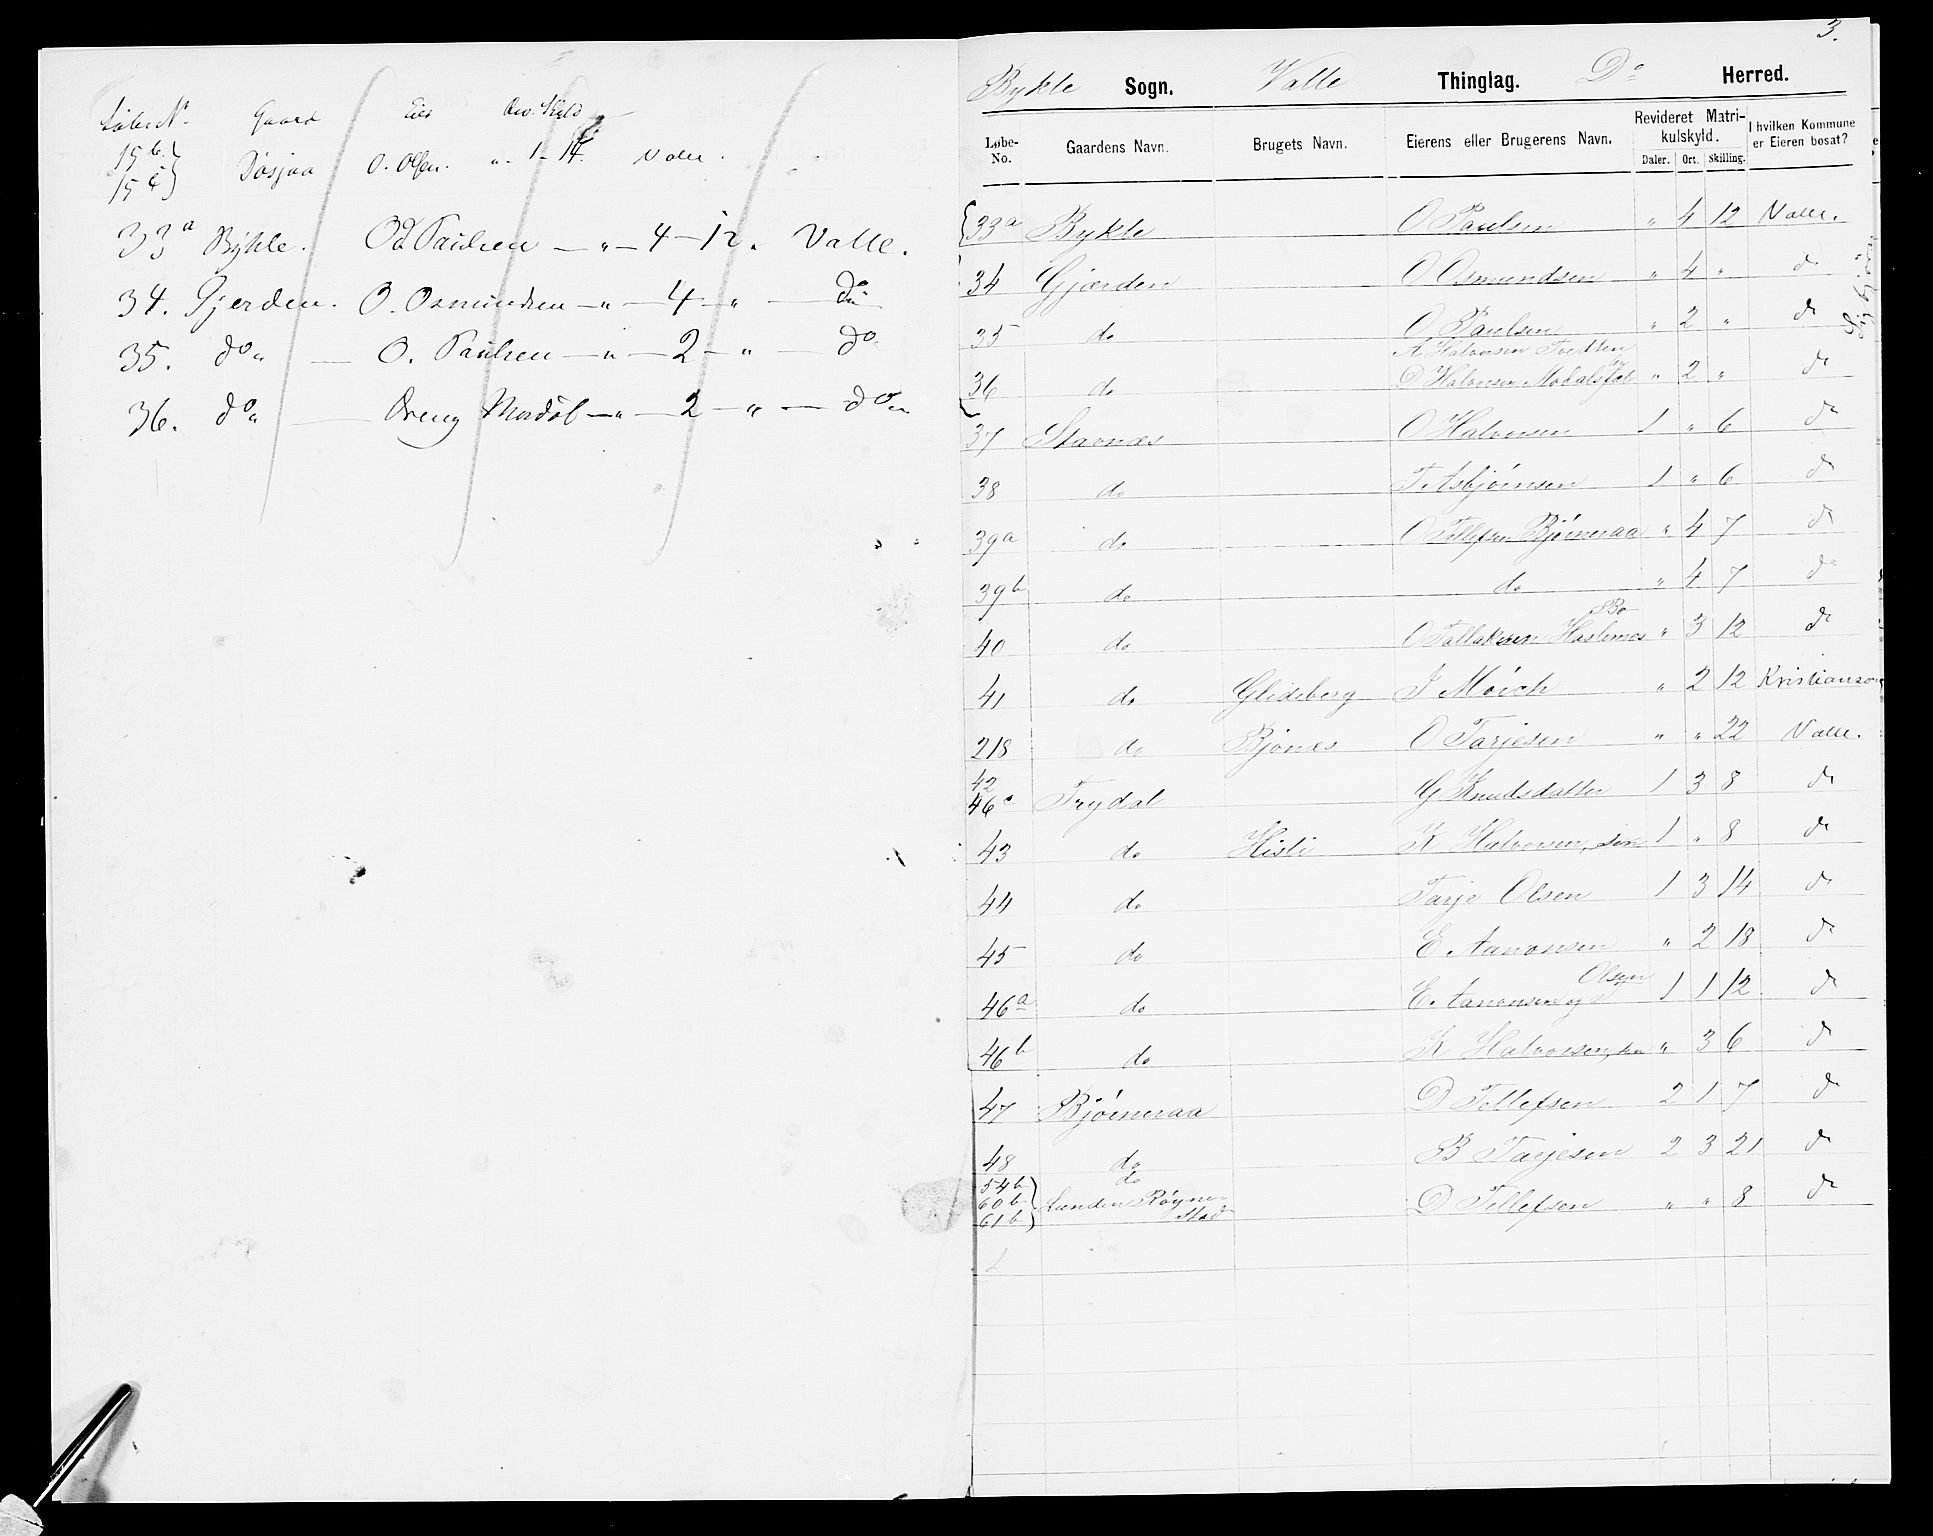 Løbe N. Gaard Eier Rev. Skyld
15 b
15 c } Dósjaa O. Olsen. " - 1 - 14. Valle.
33 a Bykle. Od Paulsen — " — 4 — 12. Valle.
34. Gjerden. O. Osmundsen — " — 4 — " — do
35. do " — O. Paulsen — " — 2 — " — do
36. do " — Dreng Mosdöl — " — 2 — " — do "
3.
Bykle Sogn. Valle Thinglag. Do Herred.
Løbe-No. Gaardens Navn. Brugets Navn. Eierens eller Brugerens Navn. Revideret Matrikulskyld. Daler. Ort. Skilling. I hvilken Kommune er Eieren bosat?
33a Bykle O Paulsen " 4 12 Valle.
34 Gjærden O Osmundsen " 4 " do
35 do O Paulsen " 2 " do
A Halvorsen Tvedten
36 do D Halvorsen " 2 " do
37 Stavnæs O Halvorsen 1 " 6 do
38 do T Asbjörnsen 1 " 6 do
39a do O Tellefsen Björneraa " 4 7 do
39b do do " 4 7 do
40 do O Tallaksen Haslemos Bo " 3 12 do
41 do Glideberg J Mörch " 2 12 Kristianson
218 do Bjönes O Tarjesen " " 22 Valle.
42
46c Trydal G Knudsdatter 1 3 8 do
43 do Hisli K Halvorsen, sen 1 " 8 do
44 do Tarje Olsen 1 3 14 do
45 do E. Aanonsen " 2 18 do
46a do E. Aanonsen og Olsen 1 1 12 do
46b do K Halvorsen, sen " 3 6 do
47 Bjórneraa D Tellefsen 2 1 7 do
48 do B Tarjesen 2 3 21 do
54b do
60b Lunden Röyne- D Tellefsen " " 8 do
61b stad